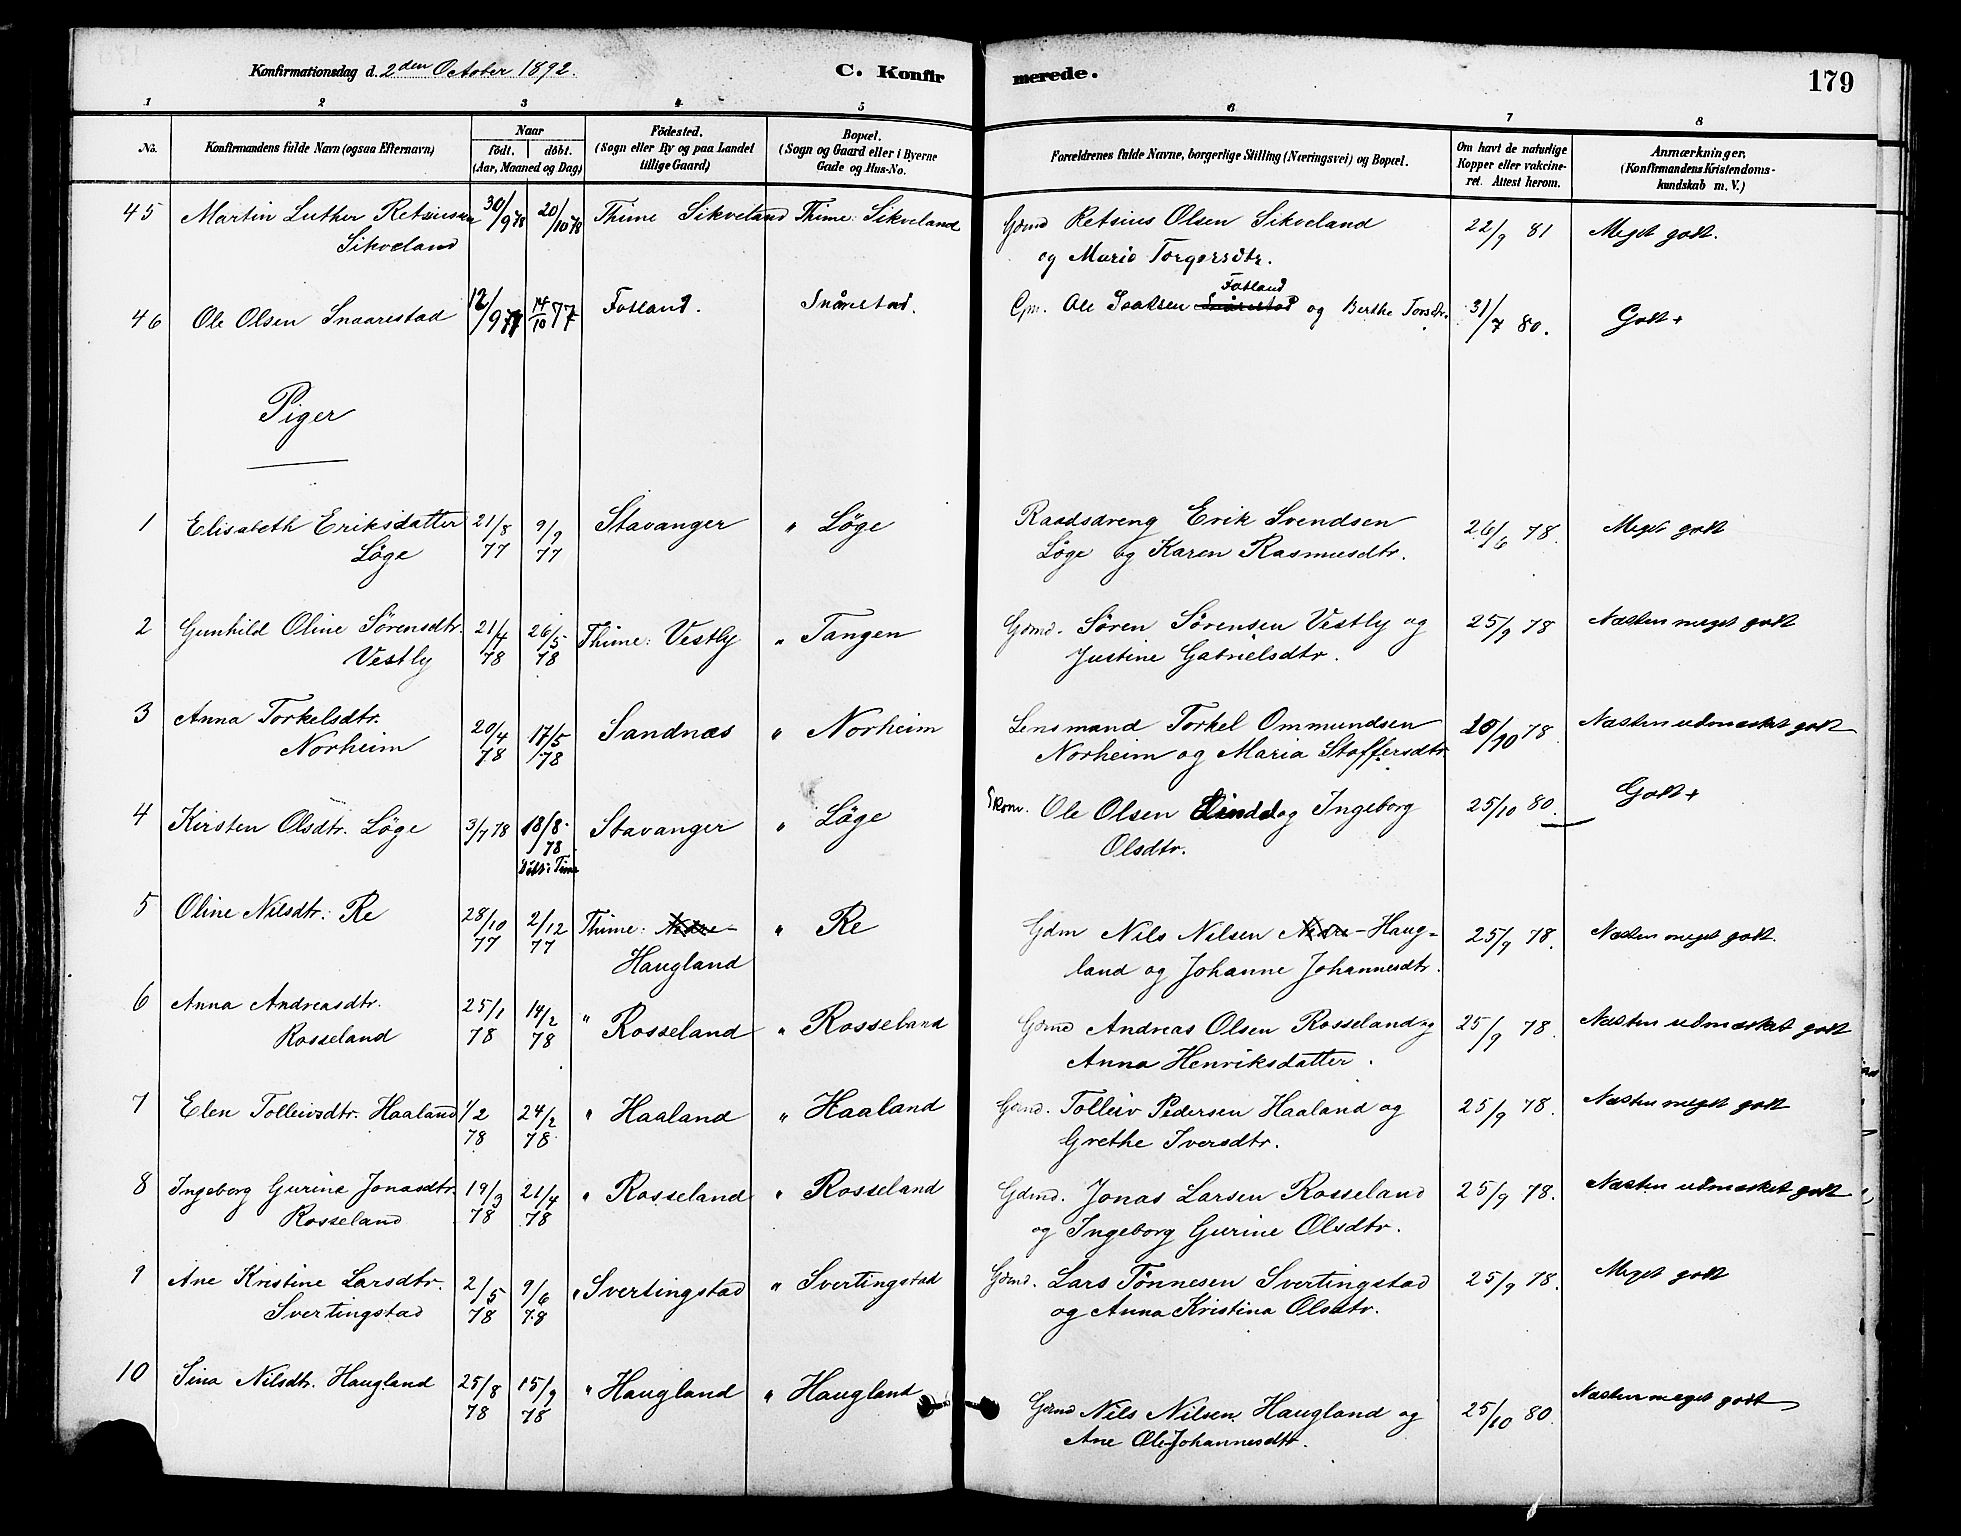 Konfirmationsdag d. 2den October 1892. C. Konfirmerede. 179
1 2 3 4 5 6 7 8
No. Konfirmandens fulde Navn (ogsaa Efternavn) Naar födt. döbt. (Aar, Maaned og Dag) Födested. (Sogn eller By og paa Landet tillige Gaard) Bopæl. (Sogn og Gaard eller i Byerne Gade og Hus-No. Forældrenes fulde Navne, borgerlige Stilling (Næringsvei) og Bopæl. Om havt de naturlige Kopper eller vakcineret. Attest herom. Anmærkninger, (Konfirmandens Kristendomskundskab m. V.)
45 Martin Luther Retsiussen 30/9 78 20/10 78 Thime Sikveland Thime: Sikveland Gdmd Retsius Olsen Sikveland 22/9 81 Meget godt.
Sikveland og Marie Torgersdtr.
Fotland
46 Ole Olsen Snaarestad 12/9 77 14/10 77 Fotland. Snårestad. Gm. Ole Isaksen Snårestad og Berthe Torsdtr. 31/7 80. Godt +
Piger
1 Elisabeth Eriksdatter 21/8 77 9/9 77 Stavanger " Löge Raadsdreng Erik Svendsen 26/6 78. Meget godt
Löge Löge og Karen Rasmusdtr.
2 Gunhild Oline Sörensdtr. 21/4 78 26/5 78 Thime: Vestly " Tangen Gdmd. Sören Sörensen Vestly og 25/9 78 Næsten meget godt
Vestly Justine Gabrielsdtr.
3 Anna Torkelsdtr. 20/4 78 17/5 78 Sandnæs " Norheim Lensmand Torkel Ommundsen 20/10 78. Næsten udmærket godt
Norheim Norheim og Maria Stoffersdtr.
4 Kirsten Olsdtr. Löge 3/7 78 18/8 78 Stavanger " Löge Skom. Ole Olsen Lindel og Ingeborg 25/10 80. Godt +
Döbt i Time Olsdtr.
5 Oline Nilsdtr. Re 28/10 77 2/12 77 Thime: Nedre- " Re Gdm Nils Nilsen Nedre-Haug- 25/9 78. Næsten meget godt.
Haugland land og Johanne Johannesdtr.
6 Anna Andreasdtr. 25/1 78 14/2 78 " Rosseland " Rosseland Gdmd Andreas Olsen Rosseland og 25/9 78. Næsten udmærket godt
Rosseland Anna Henriksdatter.
7 Elen Tolleivsdtr. Haaland 1/2 78 24/2 78 " Haaland " Haaland Gdmd. Tolleiv Pedersen Haaland og 25/9 78. Næsten meget godt
Grethe Iversdtr.
8 Ingeborg Gurine Jonasdtr. 19/3 78 21/4 78 " Rosseland " Rosseland Gdmd. Jonas Larsen Rosseland 25/9 78. Næsten udmærket godt
Rosseland og Ingeborg Gurine Olsdtr.
9 Ane Kristine Larsdtr. 2/5 78 9/6 78 " Svertingstad " Svertingstad Gdmd. Lars Tönnesen Svertingstad 25/9 78. Meget godt
Svertingstad og Anna Kristina Olsdtr.
10 Sina Nilsdtr. Haugland 25/8 78 15/9 78 " Haugland " Haugland Gdmd Nils Nilsen Haugland og 25/10 80. Næsten meget godt
Ane Ole-Johannesdtr.